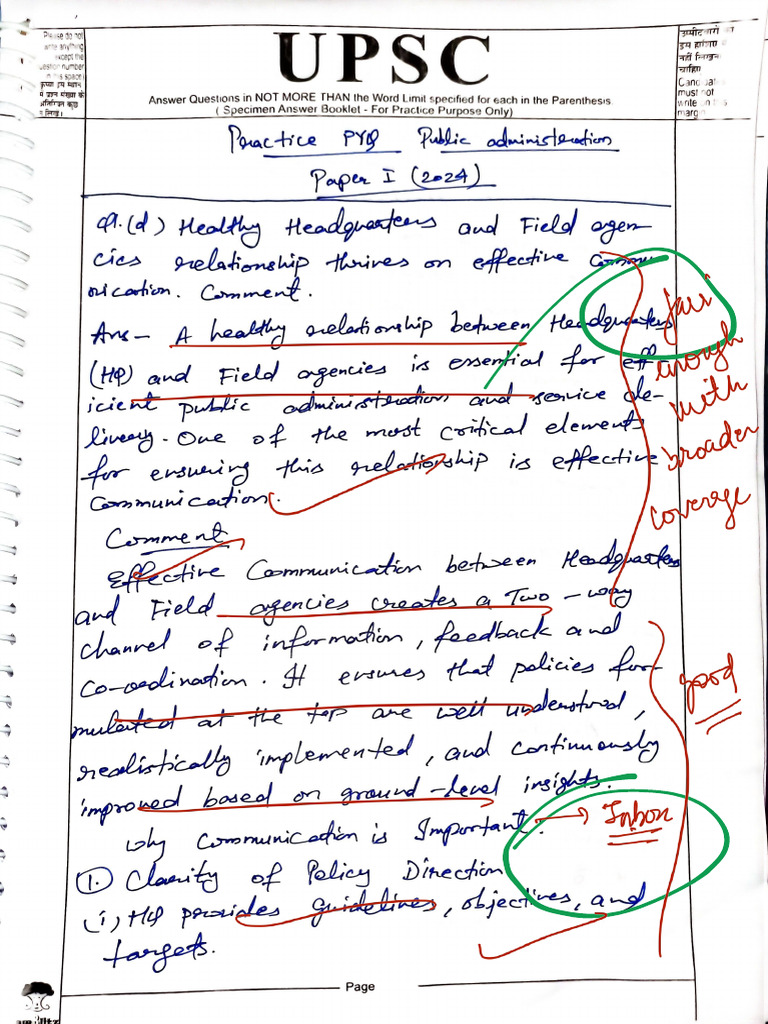 Please do not
write anything
except the
question number
in this space)
UPSC
Answer Questions in NOT MORE THAN the Word Limit specified for each in the Parenthesis
( Specimen Answer Booklet - For Practice Purpose Only)
उम्मीदवारों को
इस हाशिए
नहीं लिखना
चाहिए
Candidates
must not
write on this
margin
Practice PYQ Public administration
Paper I (2024)
Q1.(d) Healthy Headquarters and Field agen-
cies relationship thrives on effective commu
nication. Comment.
Ans- A healthy relationship between Headquarters
(HQ) and Field agencies is essential for eff
icient public administration and service de-
livery. One of the most critical elements
for ensuring this relationship is effective
Communication.
fair
enough
with
broader
coverage
Comment
Effective Communication between Headquarters
and Field agencies creates a Two-way
channel of information, feedback and
Co-ordination. It ensures that policies for-
mulated at the top are well understood,
realistically implemented, and continuously
improved based on ground-level insights.
good
why Communication is Important. → Inbox
1. Clarity of Policy Direction
(i) HQ provides guidelines, objectives, and
targets.
Page